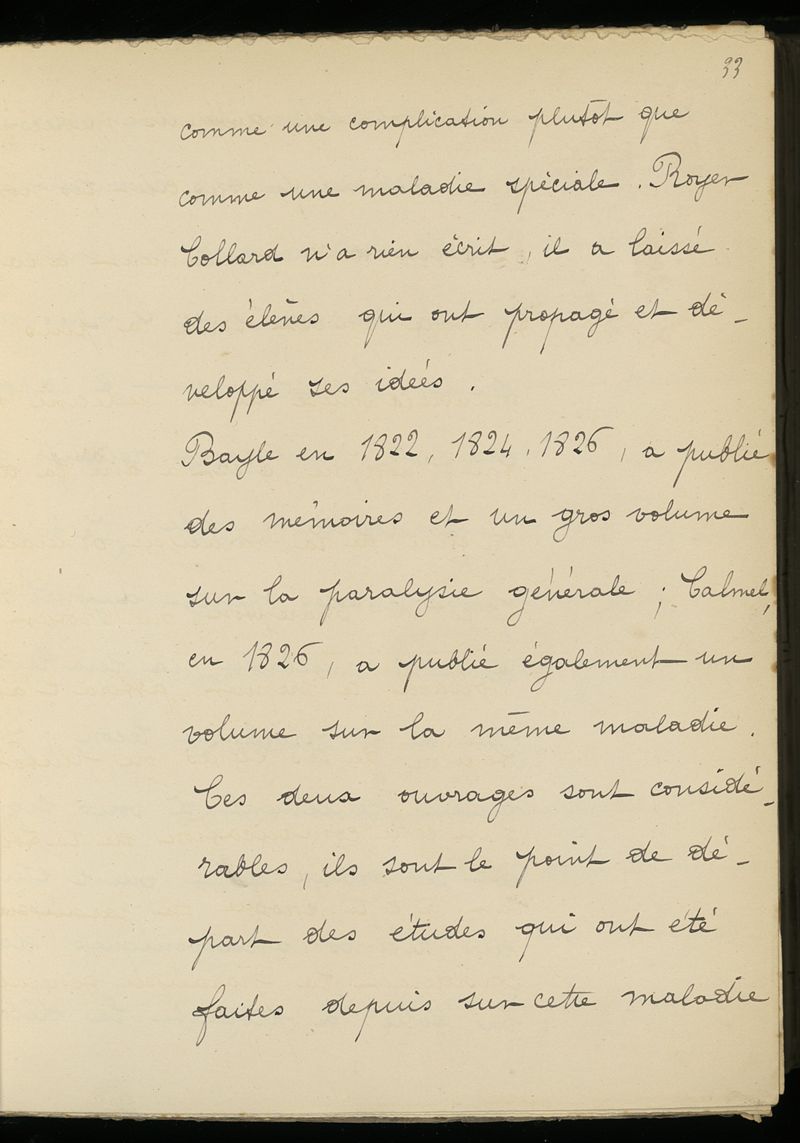 33
comme une complication plutôt que
comme une maladie spéciale. Royer
Collard n'a rien écrit, il a laissé
des élèves qui ont propagé et dé-
veloppé ses idées.
Bayle en 1822, 1824, 1826, a publié
des mémoires et un gros volume
sur la paralysie générale; Calmel,
en 1826, a publié également un
volume sur la même maladie.
Ces deux ouvrages sont considé-
rables, ils sont le point de dé-
part des études qui ont été
faites depuis sur cette maladie